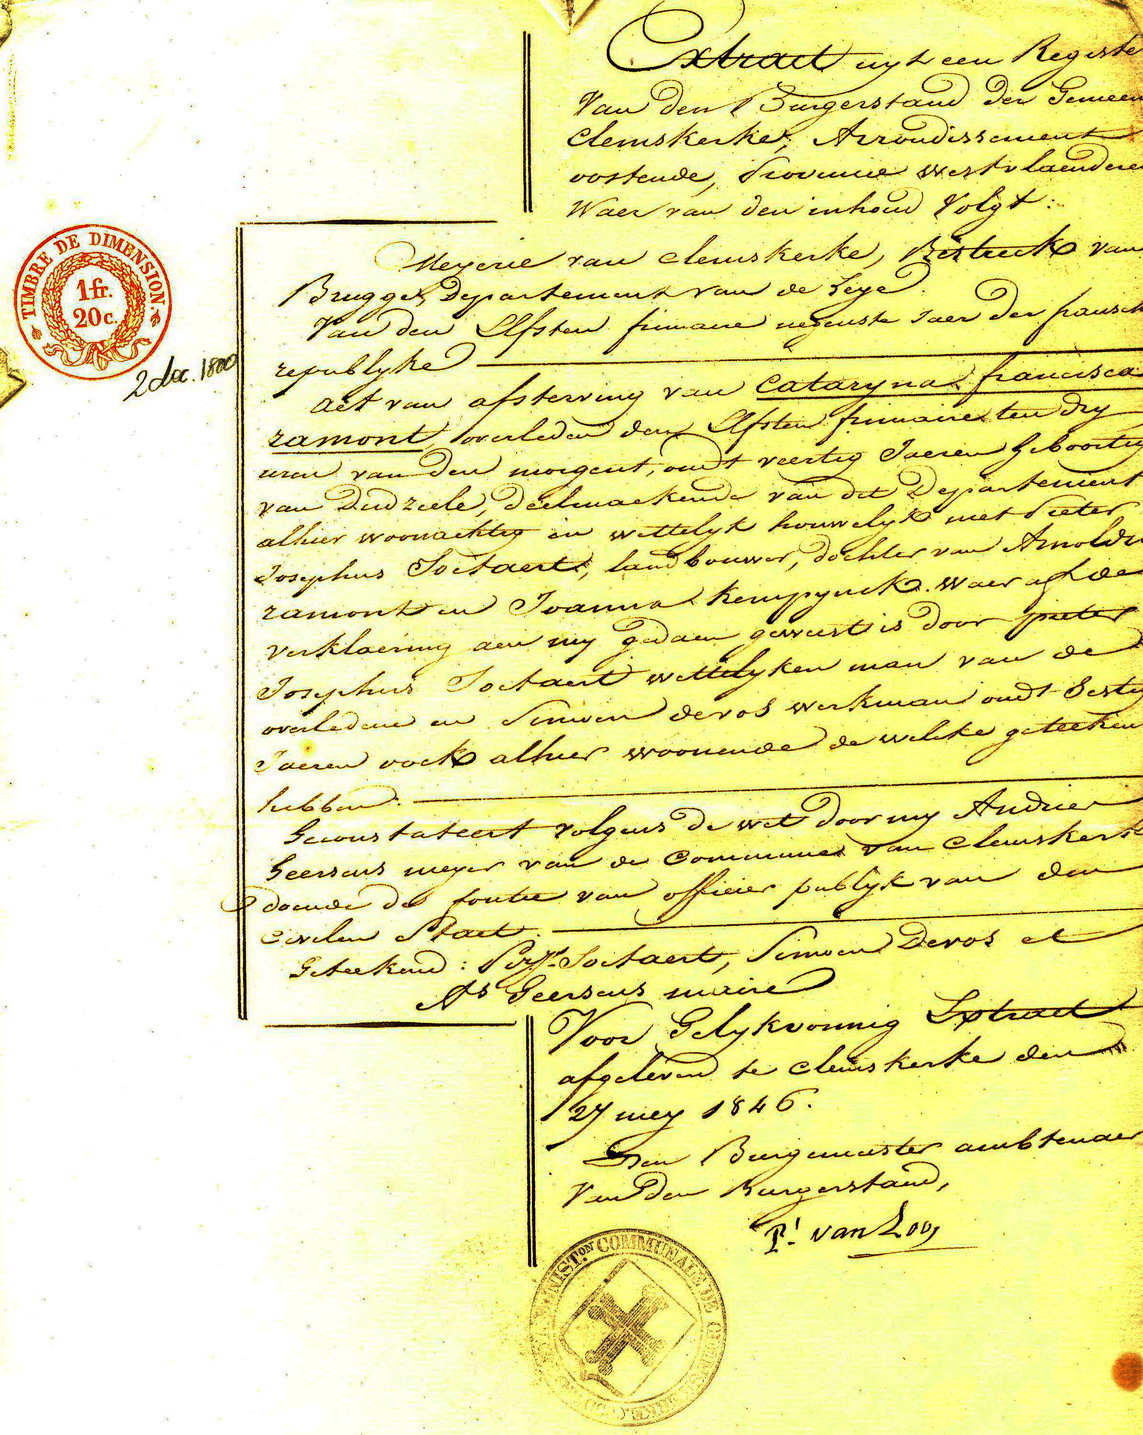 Extract uyt een Registe
Van den Burgerstand der Gemeen
Clemskerke, Arrondissement
oostende, Provincie westvlaendere
Waer van den inhoud Volgt:
TIMBRE DE DIMENSION.
1 fr.
20 c.
2 dec. 1800
Meyerie van clemskerke, Bistrick van
Brugge, Departement van de Leye
Van den Elfsten frimaire negenste Jaer der fransch
republyke
Act van afsterving van Cataryna francisca
ramont, overleden den Elfsten frimaire ten dry
uren van den morgent, oudt veertig Jaeren Geboortig
van Dudzeele, deelmaekende van dit Departement
alhier woonachtig in wettelyk houwelyk met Pieter
Josephus Soetaert, landbouwer, dochter van Arnoldu
ramont en Joanna Kempynck. waer af de
verklaering aen my gedaen geweest is door pieter
Josephus Soetaert wettelyken man van de
overledene en Simoen devos werkman oudt Sestig
Jaeren oock alhier woonende de welke geteeken
hebben.
Geconstateert volgens de wet door my Andries
Geersens meyer van de Commune van Clemskerke
doende de fontie van officier publyk van den
civilen Staet.
Geteekend: Soetaert, Simoen Devos et
As Geersens maire
Voor Gelykvormig Extract
afgeleverd te clemskerke den
27 mey 1846.
Den Burgemeester ambtenaer
Van den Burgerstand,
P! van Looy
ADMINIST.ON COMMUNALE DE CLEMSKERKE